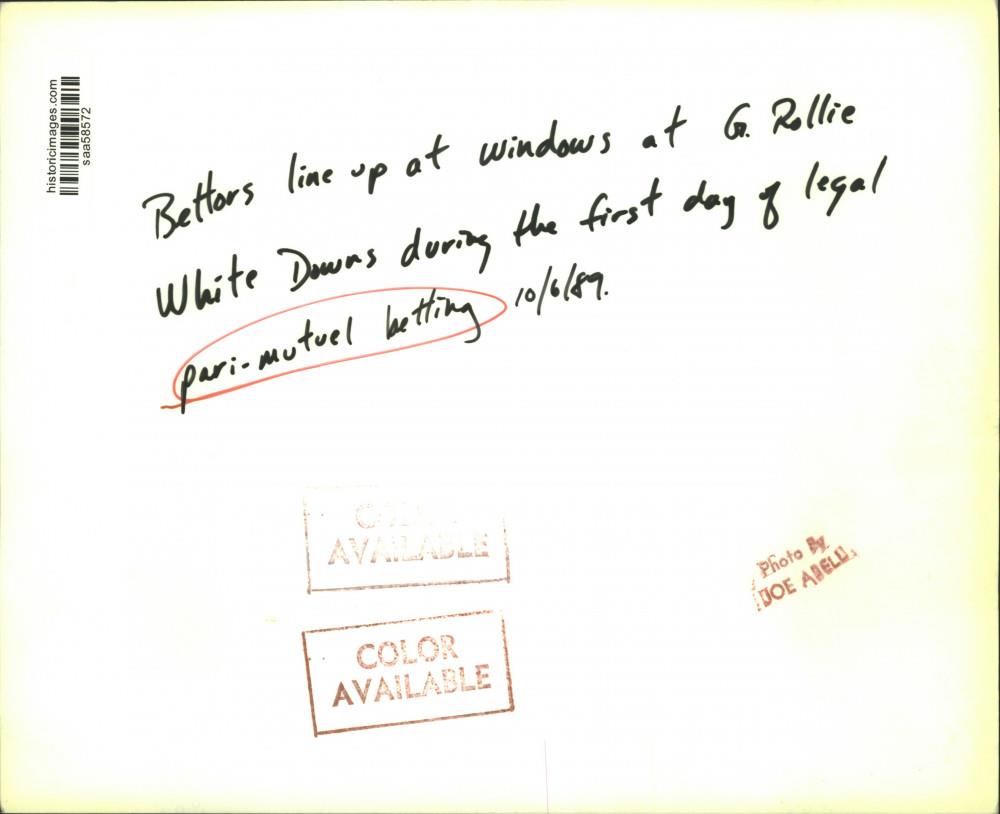 historicimages.com
saa58572
Bettors line up at windows at G. Rollie
White Downs during the first day of legal
pari-mutuel betting 10/6/89.
COLOR
AVAILABLE
COLOR
AVAILABLE
Photo By
JOE ABELL